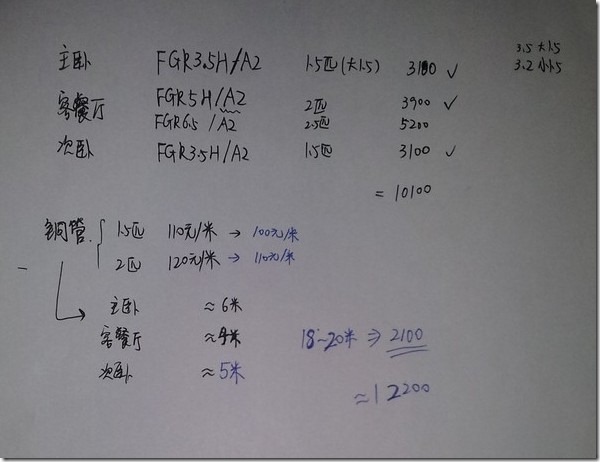 3.5 大1.5
主卧 FGR3.5H/A2 1.5匹(大1.5) 3100 ✓
3.2 小1.5
客餐厅 FGR5H/A2 2匹 3900 ✓
FGR6.5 /A2 2.5匹 5200
次卧 FGR3.5H/A2 1.5匹 3100 ✓
= 10100
铜管 1.5匹 110元/米 → 100元/米
2匹 120元/米 → 110元/米
主卧 ≈6米
客餐厅 ≈4米 18~20米 ⇒ 2100
次卧 ≈5米
≈12200